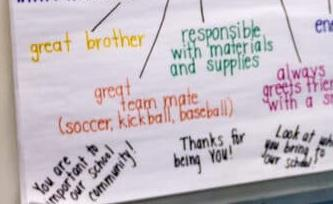 great brother
responsible
with materials
and supplies
great
team mate
(soccer, kickball, baseball)
always
greets
with a
You are
important to
our school
community!
Thanks for
being YOU!
Look at
you bring to
our school!